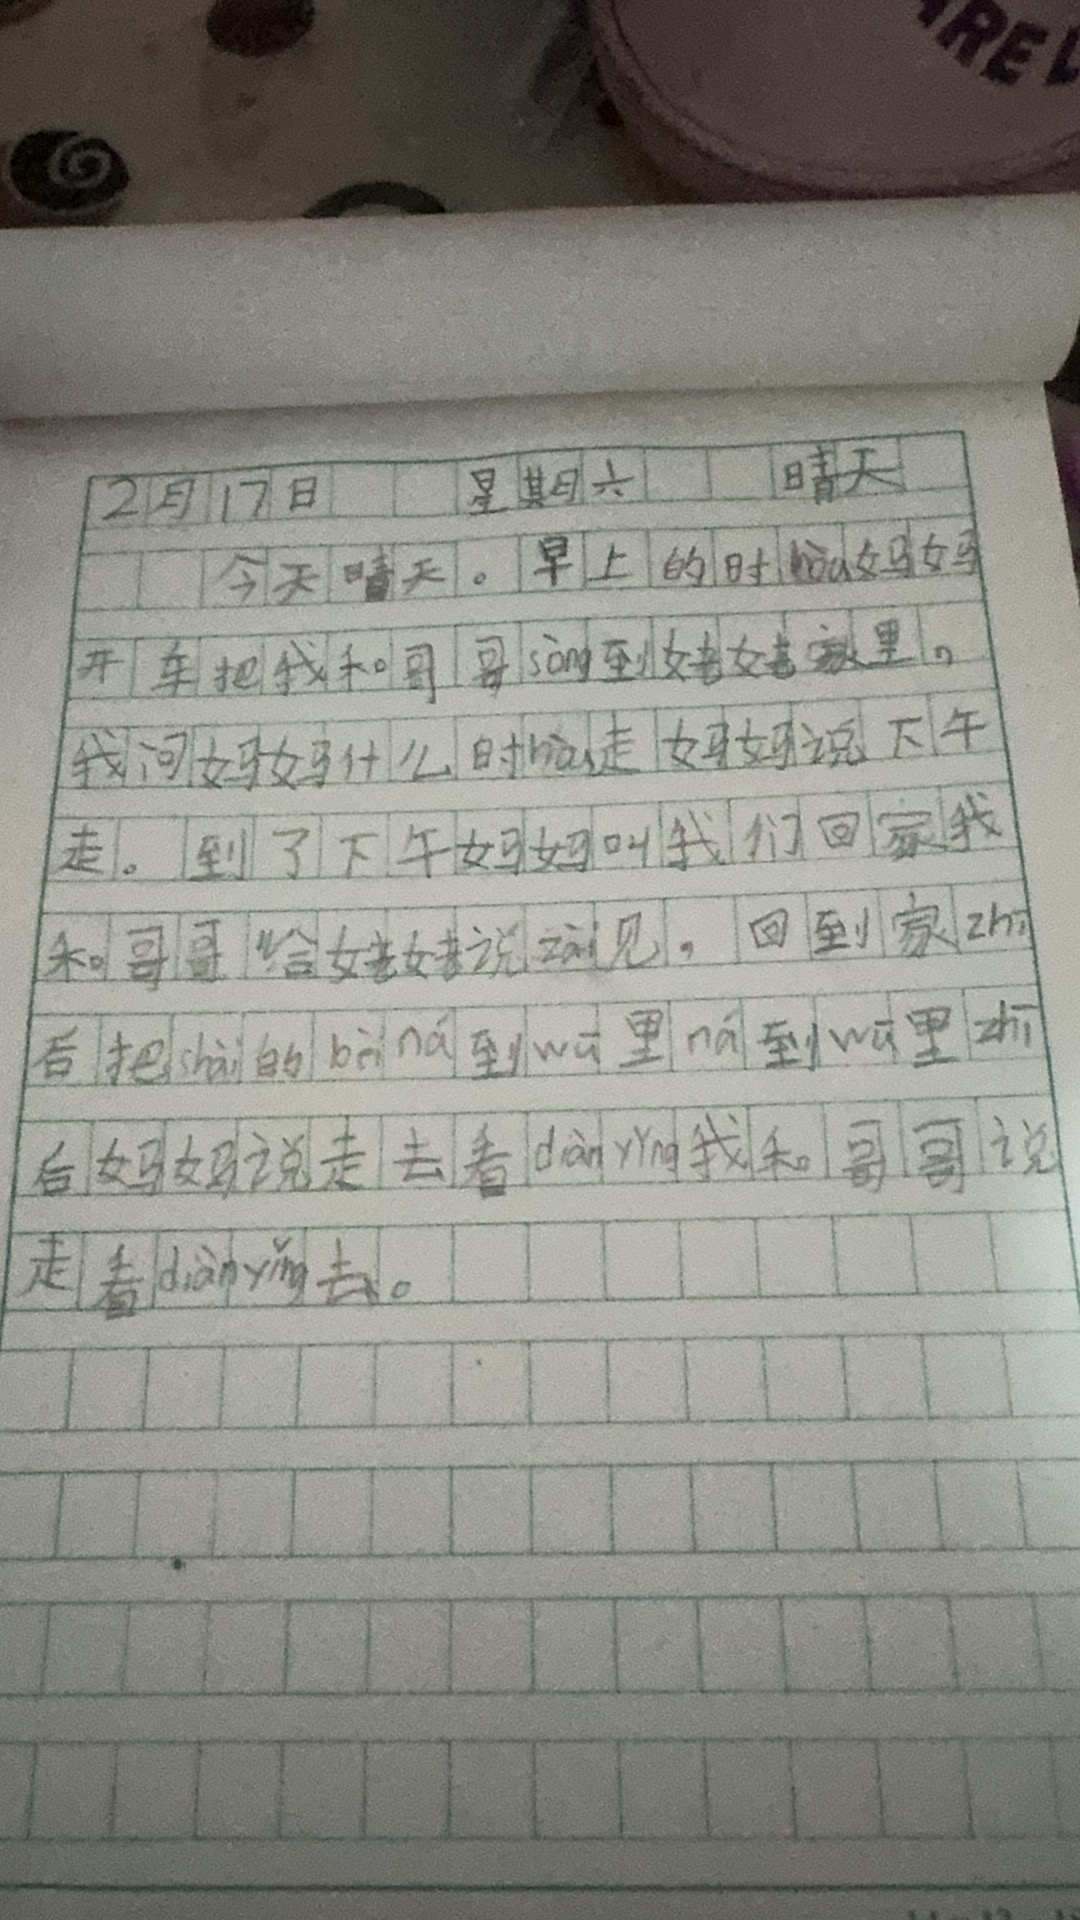 ARE L
2月17日 星期六 晴天
今天晴天。早上的时hòu妈妈
开车把我和哥哥sòng到姥姥家里。
我问妈妈什么时hòu走妈妈说下午
走。到了下午妈妈叫我们回家我
和哥哥给姥姥说zài见。回到家zhī
后把shài的bèi ná到wū里ná到wū里zhī
后妈妈说走去看diàn yǐng我和哥哥说
走看diàn yǐng去。